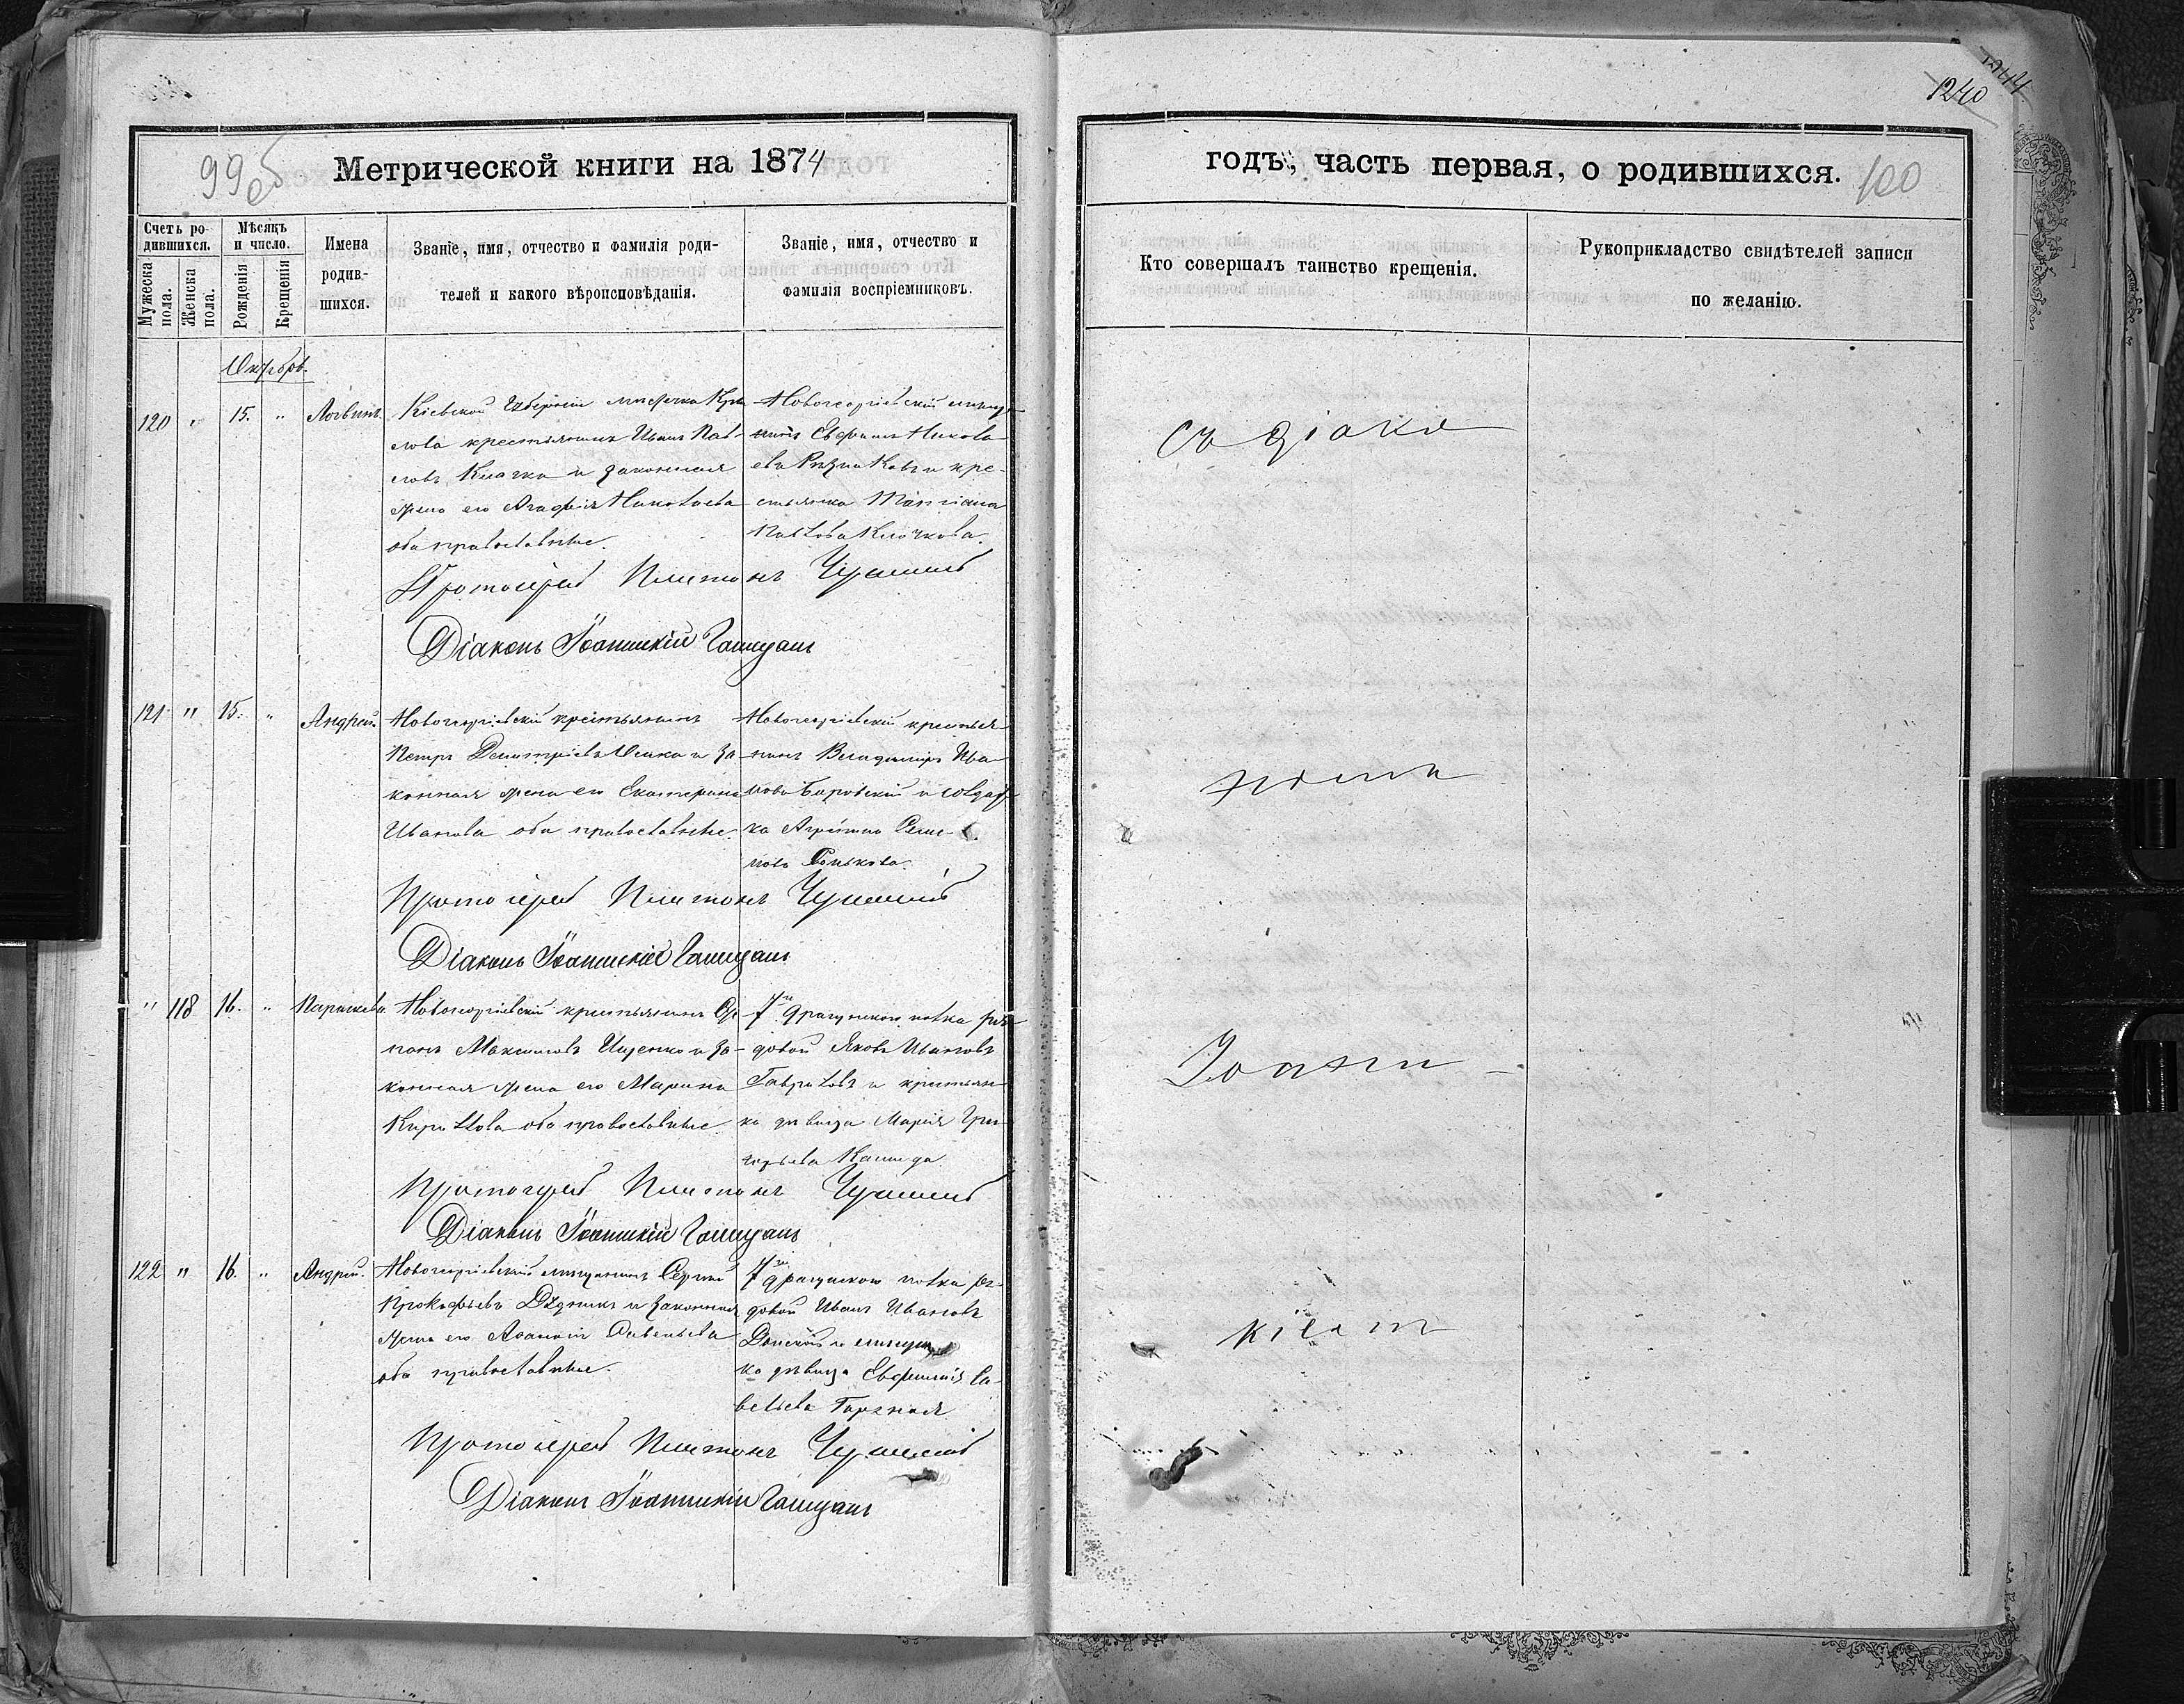 1240
99об
Метрической книги на 1874
годъ, часть первая, о родившихся.
100
Счетъ ро-
дившихся.
Мужеска
пола.
Женска
пола.
Мѣсяцъ
и число.
Рожденія
Крещенія
Имена
родив-
шихся.
Званіе, имя, отчество и фамилія роди-
телей и какого вѣроисповѣданія.
Званіе, имя, отчество и
фамилія воспріемниковъ.
Кто совершалъ таинство крещенія.
Рукоприкладство свидѣтелей записи
по желанію.
Октябрь.
120 " 15. " Логвинъ.
Кіевской Губерніи мѣстечка Кры-
лова крестьянинъ Иванъ Пав-
ловъ Клочко и законная
жена его Агафія Николаева
оба православные.
Новогеоргіевскій мѣща-
нинъ Никола-
евъ и кре-
стьянка
Павлова Клочкова.
Протоіерей Платонъ
Діаконъ Іоанникій
съ діако
121 " 15. " Андрей.
Новогеоргіевскій крестьянинъ
Петръ Димитріевъ и за-
конная жена его Екатерина
Иванова оба православные.
Новогеоргіевскій крестья-
нинъ Владимиръ Ива-
новъ Боровскій и солдат-
ка Семе-
нова
Протоіерей Платонъ
Діаконъ Іоанникій
номъ
" 118 16. " Параскева.
Новогеоргіевскій крестьянинъ
Максимовъ Ищенко и за-
конная жена его Марина
Кирилова оба православные.
7го драгунскаго полка ря-
довой Яковъ Ивановъ
Гавриловъ и крестьян-
ка дѣвица Марія Гри-
горьева
Протоіерей Платонъ
Діаконъ Іоанникій
Іоанни
122 " 16. " Андрей.
Новогеоргіевскій мѣщанинъ Сергій
Прокофьевъ Дѣдникъ и законная
жена его Савельева
оба православные.
7го драгунскаго полка ря-
довой Иванъ Ивановъ
Донской и мѣщан-
ка дѣвица Евфимія Са-
вельева
Протоіерей Платонъ
Діаконъ Іоанникій
кіемъ